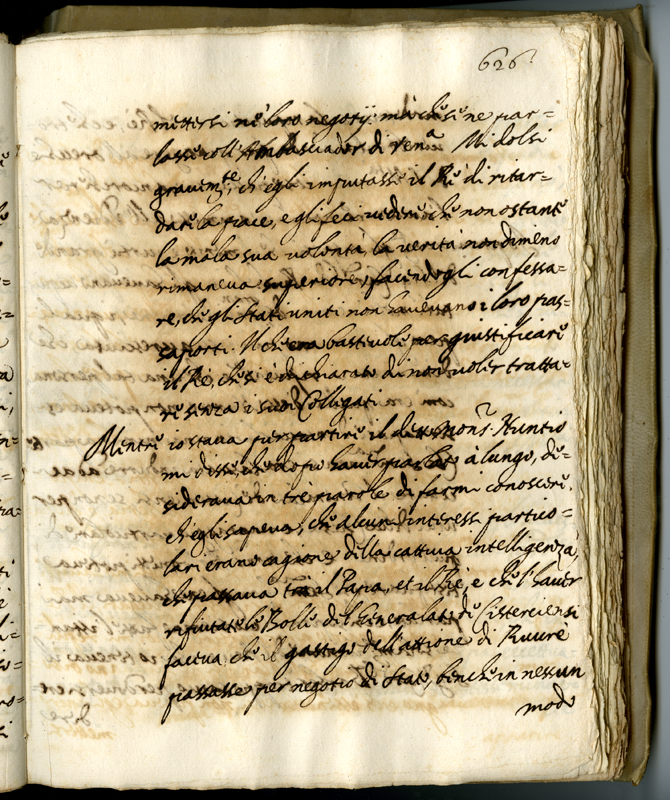 626
mettersi ne' loro negotij: mà che se ne par=
lasse coll'Ambasciador di Ven.ª Mi dolsi
gravem.te, ch'egli imputasse il Rè di ritar=
dare la pace, e gli feci vedere che non ostante
la mala sua volontà, la verità nondimeno
rimaneva superiore, facendogli confessa=
re, che gli Stati uniti non havevano i loro pas=
saporti. Il che era bastevole per giustificare
il Rè, che si è dichiarato di non voler tratta=
re senza i suoi Collegati.
Mentre io stava per partire il detto Mons.r Nuntio
mi disse, che dopo haver parlato a lungo, de=
siderava in trè parole di farmi conoscere,
ch'egli sapeva, che alcuni interessi partico=
lari erano cagione della cattiva intelligenza,
che passava trà il Papa, et il Rè, e che l'haver
rifiutate le Bolle del Generalato de' Cisterciensi
faceva, che il gastigo dell'attione di Beuvre
passasse per negotio di Stato, benche in nessun
modo